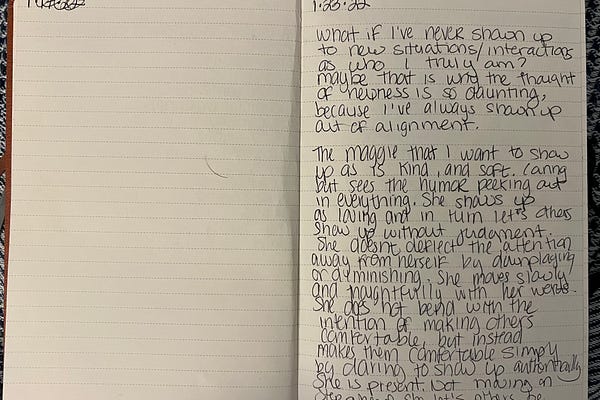 1.23.22
what if I've never shown up
to new situations/interactions
as who I truly am?
maybe that is why the thought
of newness is so daunting,
because I've always shown up
out of alignment.
The maggie that I want to show
up as is kind, and soft. Caring
but sees the humor peeking out
in everything. She shows up
as loving and in turn lets others
show up without judgment.
She doesn't deflect the attention
away from herself by downplaying
or diminishing. She moves slowly
and thoughtfully with her words.
She does not bend with the
intention of making others
comfortable, but instead
makes them comfortable simply
by daring to show up authentically
She is present. Not moving on
let's others be